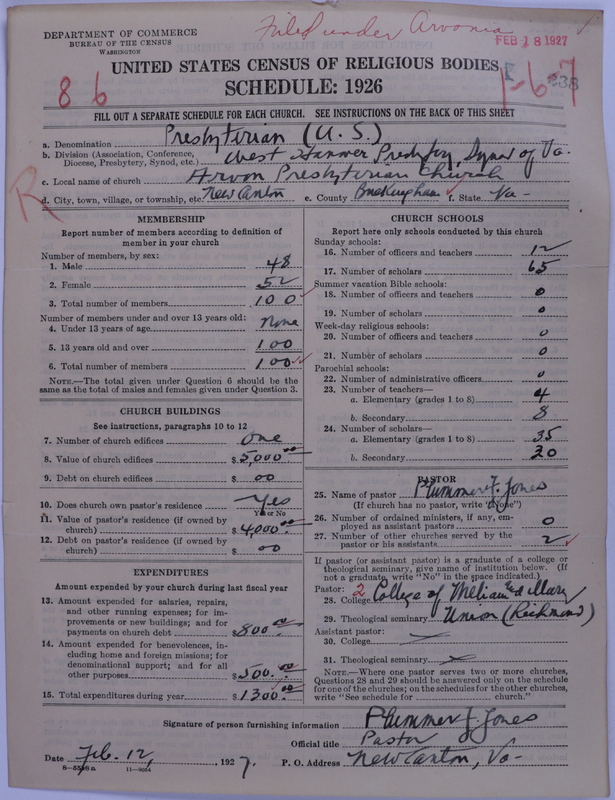 Filed under Arvonia
DEPARTMENT OF COMMERCE
BUREAU OF THE CENSUS
WASHINGTON
FEB 18 1927
UNITED STATES CENSUS OF RELIGIOUS BODIES
SCHEDULE: 1926
8 6
1-6-7
FILL OUT A SEPARATE SCHEDULE FOR EACH CHURCH. SEE INSTRUCTIONS ON THE BACK OF THIS SHEET
a. Denomination Presbyterian (U.S.)
b. Division (Association, Conference, Diocese, Presbytery, Synod, etc.) West Hanover Presbytery, Synod of Va.
c. Local name of church Arvon Presbyterian Church
R
d. City, town, village, or township, etc. New Canton e. County Buckingham f. State Va-
MEMBERSHIP
Report number of members according to definition of
member in your church
Number of members, by sex:
1. Male 48
2. Female 52
3. Total number of members 100
Number of members under and over 13 years old:
4. Under 13 years of age None
5. 13 years old and over 100
6. Total number of members 100
NOTE.—The total given under Question 6 should be the
same as the total of males and females given under Question 3.
CHURCH BUILDINGS
See instructions, paragraphs 10 to 12
7. Number of church edifices one
8. Value of church edifices $5,000.00
9. Debt on church edifices $ 00
10. Does church own pastor's residence Yes
Yes or No
11. Value of pastor's residence (if owned by
church) $4,000.00
12. Debt on pastor's residence (if owned by
church) $ 00
EXPENDITURES
Amount expended by your church during last fiscal year
13. Amount expended for salaries, repairs,
and other running expenses; for im-
provements or new buildings; and for
payments on church debt $800.00
14. Amount expended for benevolences, in-
cluding home and foreign missions; for
denominational support; and for all
other purposes $500.00
15. Total expenditures during year $1300.00
CHURCH SCHOOLS
Report here only schools conducted by this church
Sunday schools:
16. Number of officers and teachers 12
17. Number of scholars 65
Summer vacation Bible schools:
18. Number of officers and teachers 0
19. Number of scholars 0
Week-day religious schools:
20. Number of officers and teachers 0
21. Number of scholars 0
Parochial schools:
22. Number of administrative officers 0
23. Number of teachers—
a. Elementary (grades 1 to 8) 4
b. Secondary 8
24. Number of scholars—
a. Elementary (grades 1 to 8) 35
b. Secondary 20
PASTOR
25. Name of pastor Plummer F. Jones
(If church has no pastor, write "None")
26. Number of ordained ministers, if any, em-
ployed as assistant pastors 0
27. Number of other churches served by the
pastor or his assistants 2
If pastor (or assistant pastor) is a graduate of a college or
theological seminary, give name of institution below. (If
not a graduate, write "No" in the space indicated.)
Pastor: 2
28. College College of William and Mary
29. Theological seminary Union (Richmond)
Assistant pastor:
30. College
31. Theological seminary
NOTE.—Where one pastor serves two or more churches,
Questions 28 and 29 should be answered only on the schedule
for one of the churches; on the schedules for the other churches,
write "See schedule for church."
Signature of person furnishing information Plummer F. Jones
Official title Pastor
Date Feb. 12, 1927. P. O. Address New Canton, Va-
11—9064